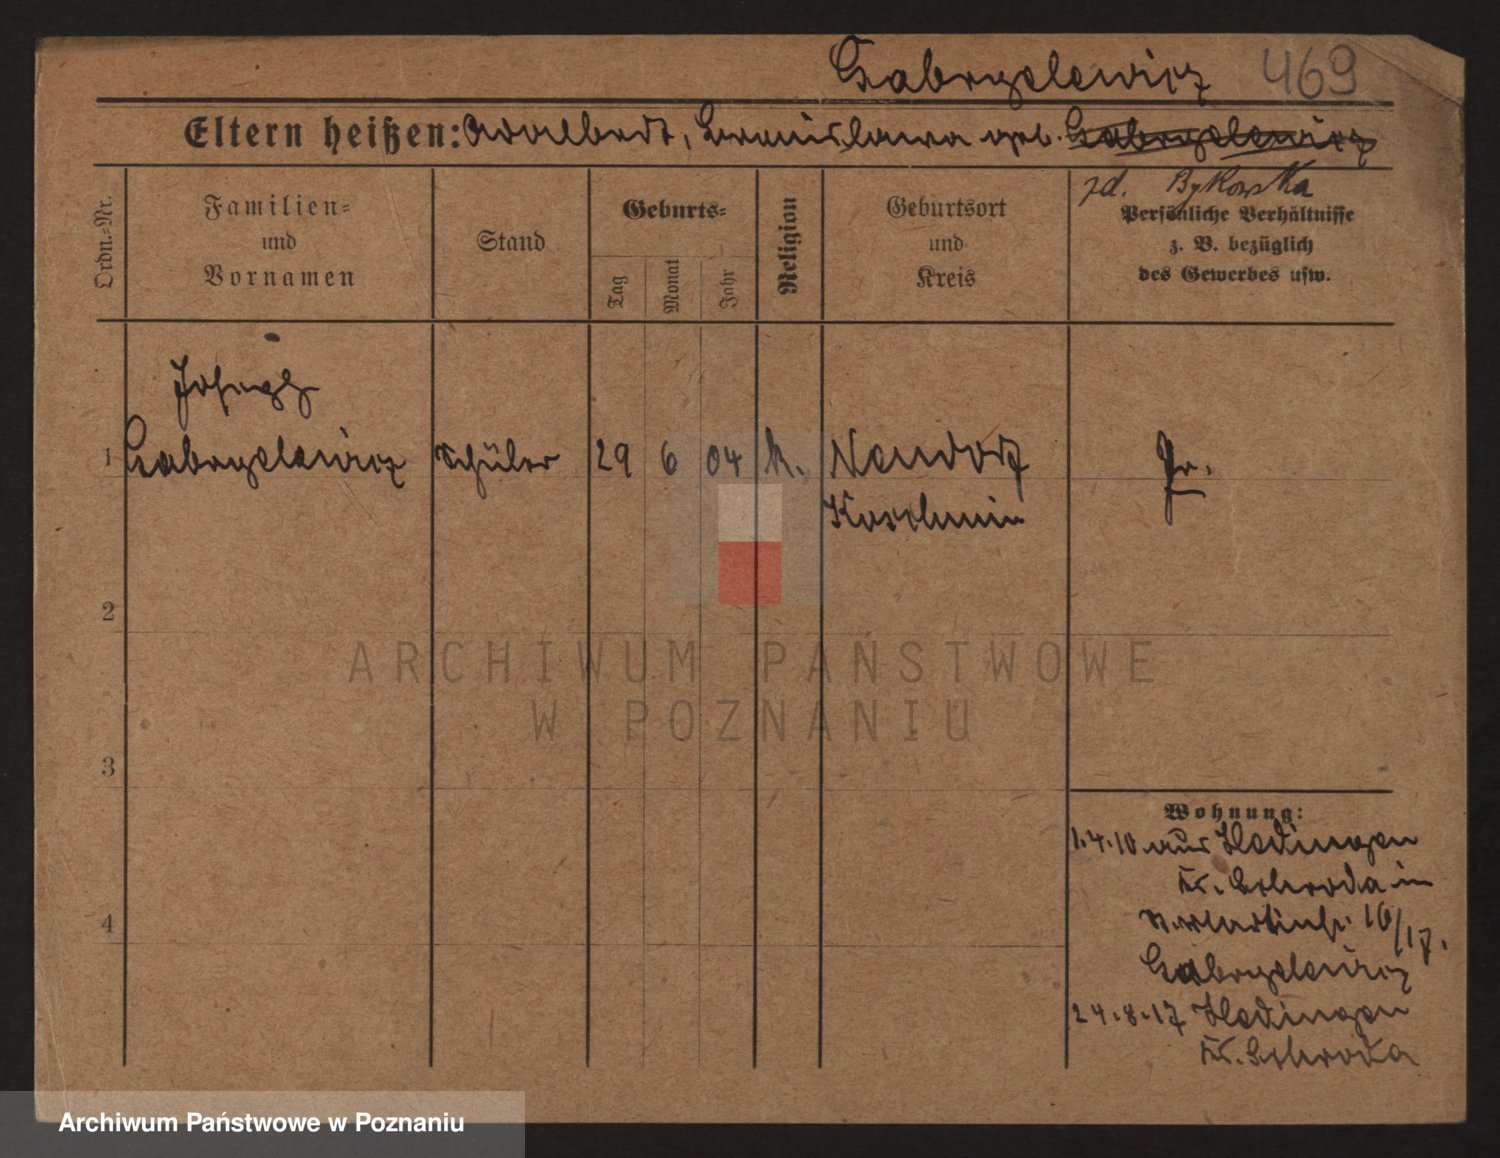 Gabryelewicz 469
Eltern heißen: Adalbert, Bronislawa geb. Gabryelewicz
Bykowska
Ordn.-Nr.
Familien-
und
Vornamen
Stand
Geburts-
Tag
Monat
Jahr
Religion
Geburtsort
und
Kreis
Persönliche Verhältnisse
z. B. bezüglich
des Gewerbes usw.
Joseph
1 Gabryelewicz Schüler 29 6 04 k. Neudorf Pr.
Koschmin
2
3
4
Wohnung:
1.4.10 aus Hedingen
Kr. Schroda in
St. Martinstr. 16/17.
Gabryelewicz
24.8.17 Hedingen
Kr. Schroda
ARCHIWUM PAŃSTWOWE
W POZNANIU
Archiwum Państwowe w Poznaniu